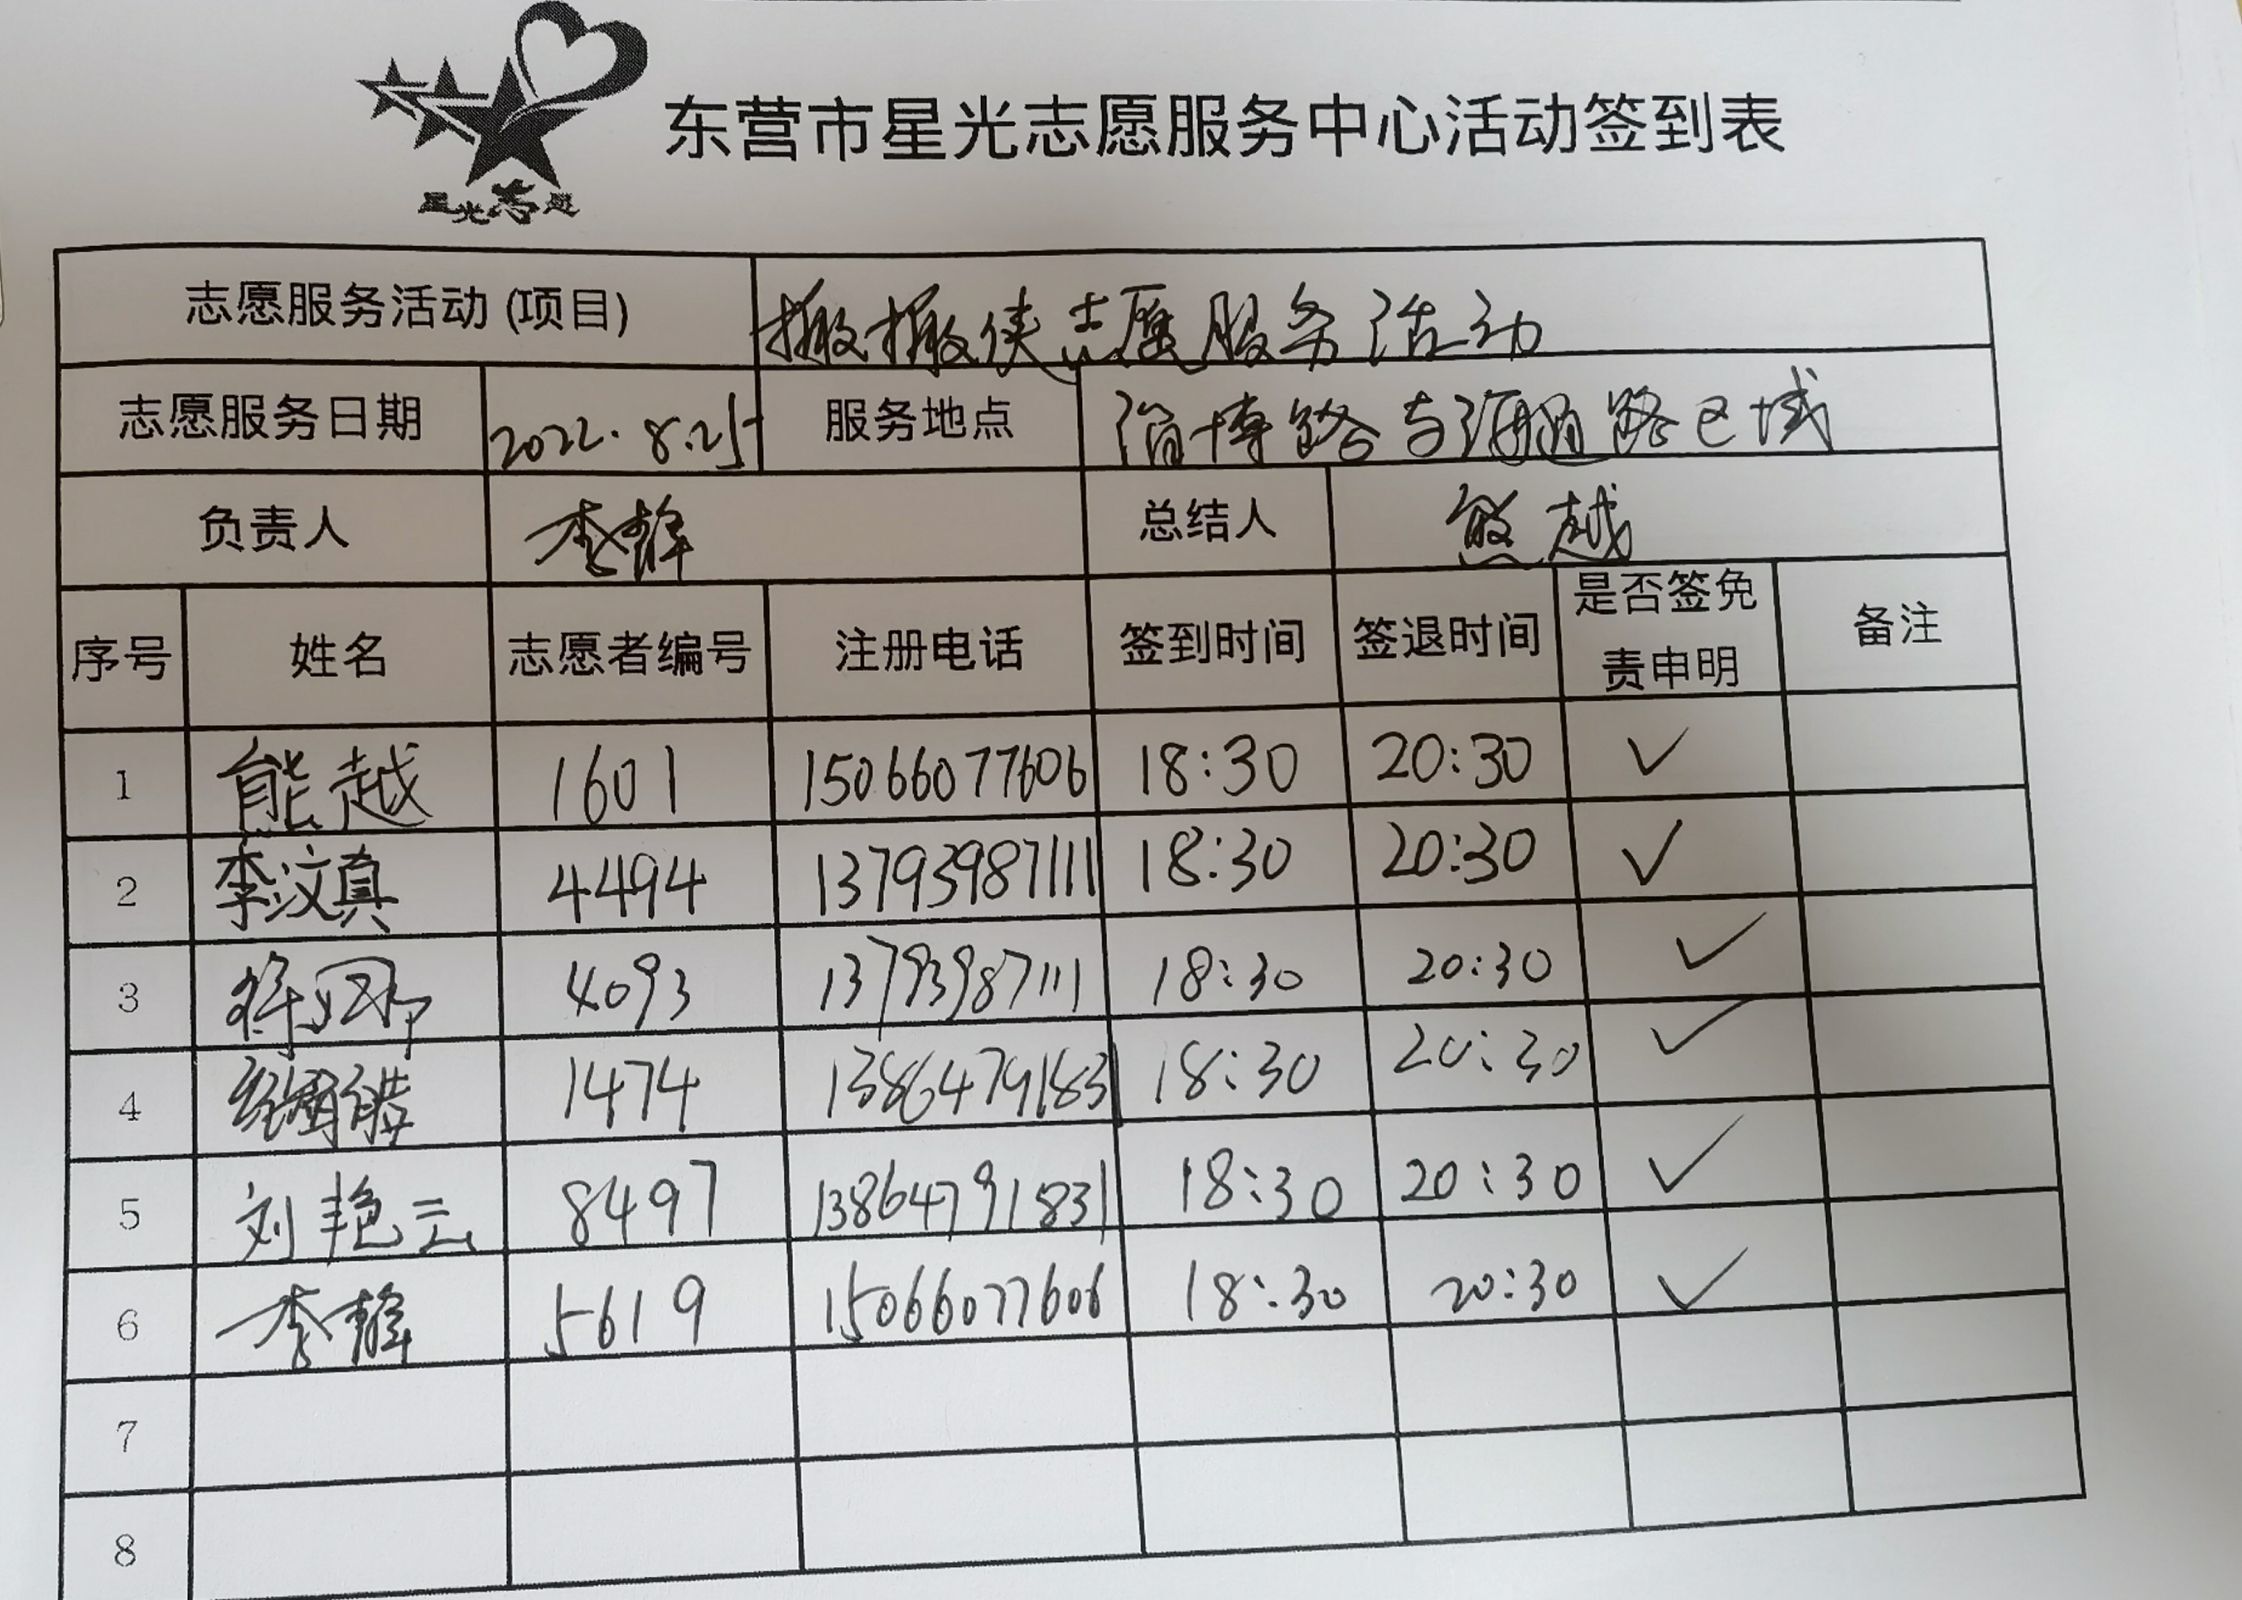 星光志愿
东营市星光志愿服务中心活动签到表
志愿服务活动 (项目) 搬搬侠志愿服务活动
志愿服务日期 2022.8.25 服务地点 淄博路与海通路区域
负责人 李静 总结人 熊越
序号 姓名 志愿者编号 注册电话 签到时间 签退时间 是否签免责申明 备注
1 熊越 1601 15066077606 18:30 20:30 ✓
2 李汶真 4494 13793987111 18:30 20:30 ✓
3 4093 13793987111 18:30 20:30 ✓
4 1474 1386479183 18:30 20:30 ✓
5 刘艳云 8497 13864791831 18:30 20:30 ✓
6 李静 5619 15066077606 18:30 20:30 ✓
7
8